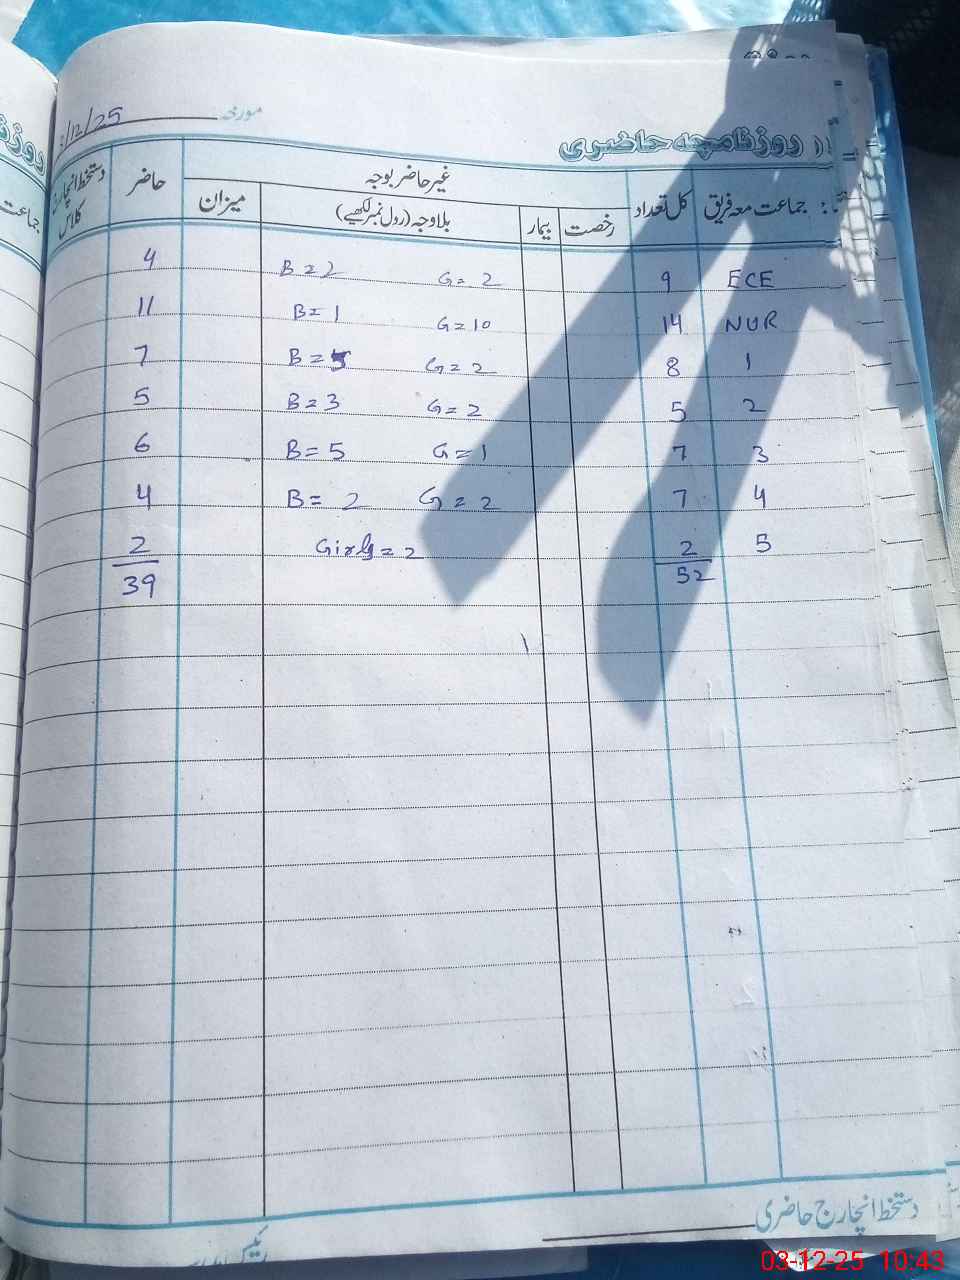 مورخہ /12/25
روزنامچہ حاضری
جماعت معہ فریق کل تعداد غیر حاضر بوجہ حاضر دستخط انچارج کلاس
رخصت بیمار بلاوجہ (رول نمبر لکھیے) میزان
4 B=2 G=2 9 ECE
11 B=1 G=10 14 NUR
7 B=5 G=2 8 1
5 B=3 G=2 5 2
6 B=5 G=1 7 3
4 B=2 G=2 7 4
2 Girls=2 2 5
39 52
دستخط انچارج حاضری
03-12-25 10:43